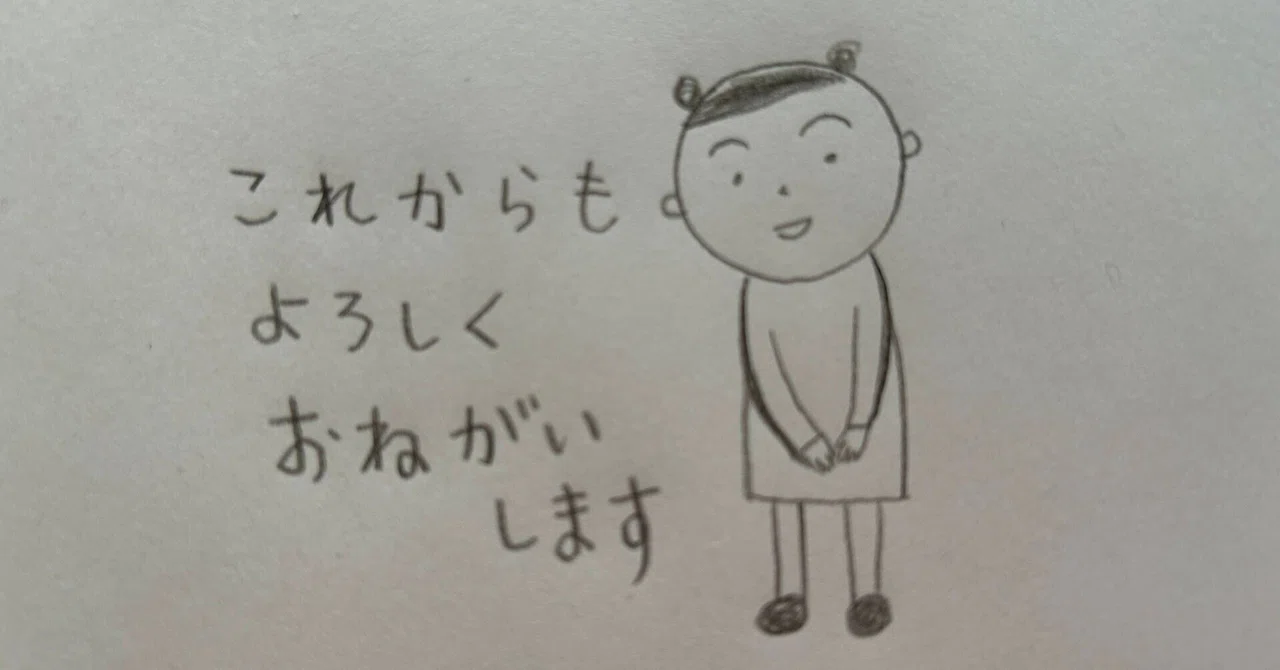 これからも
よろしく
おねがい
します